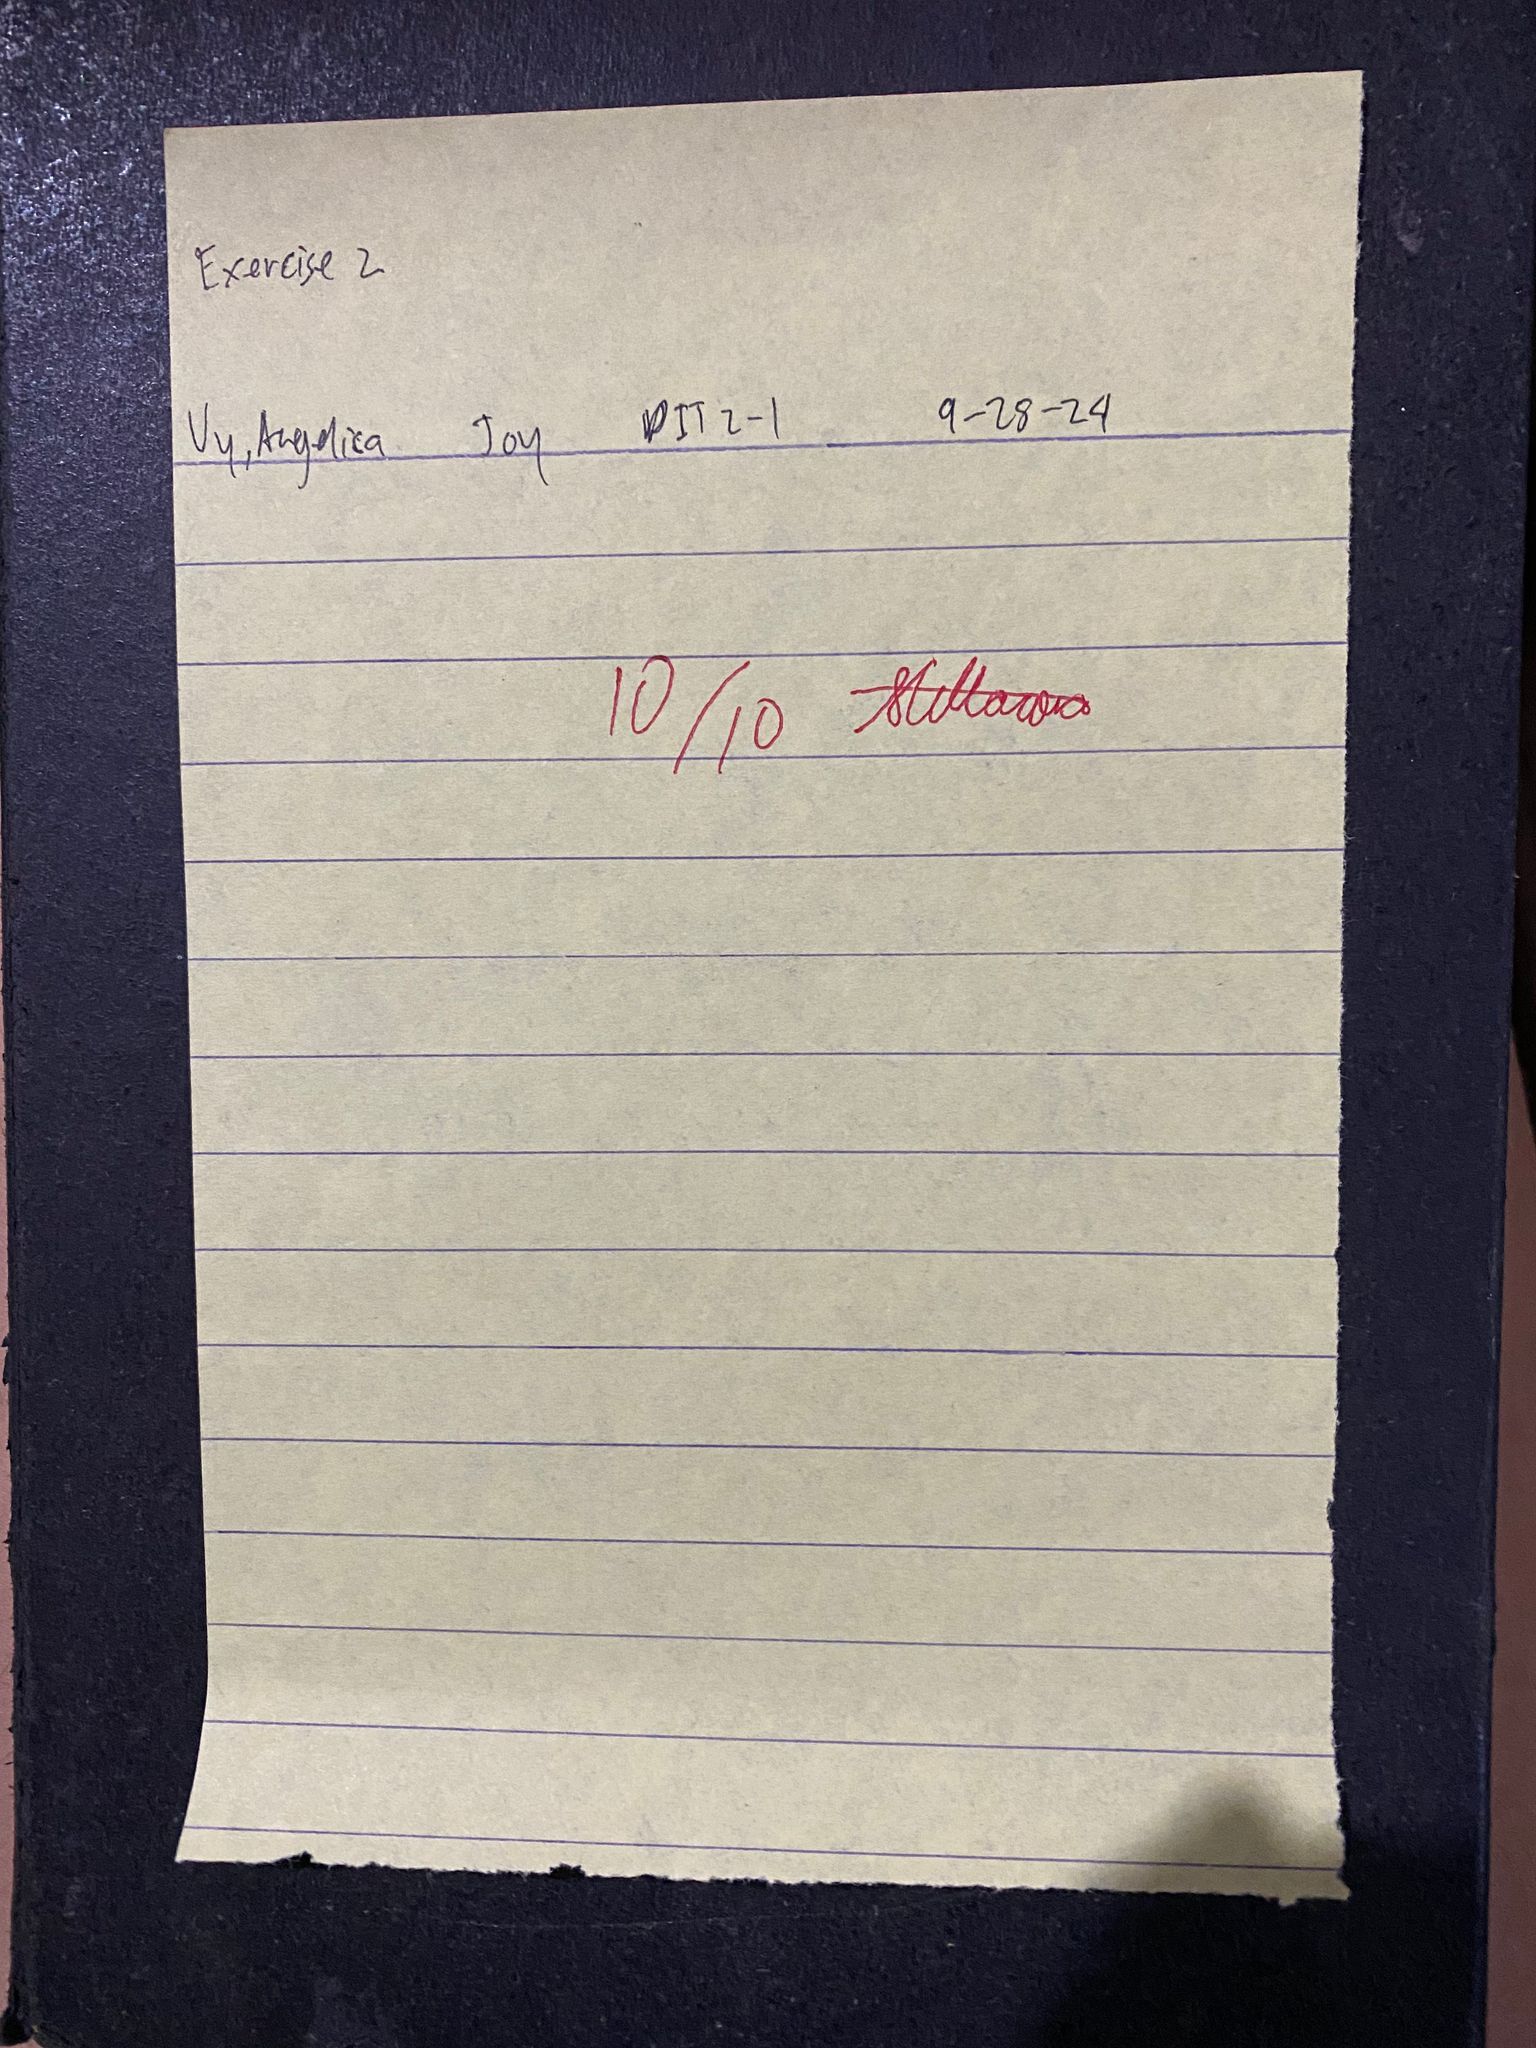 Exercise 2
Uy, Angelica Joy DIT 2-1 9-28-24
10/10